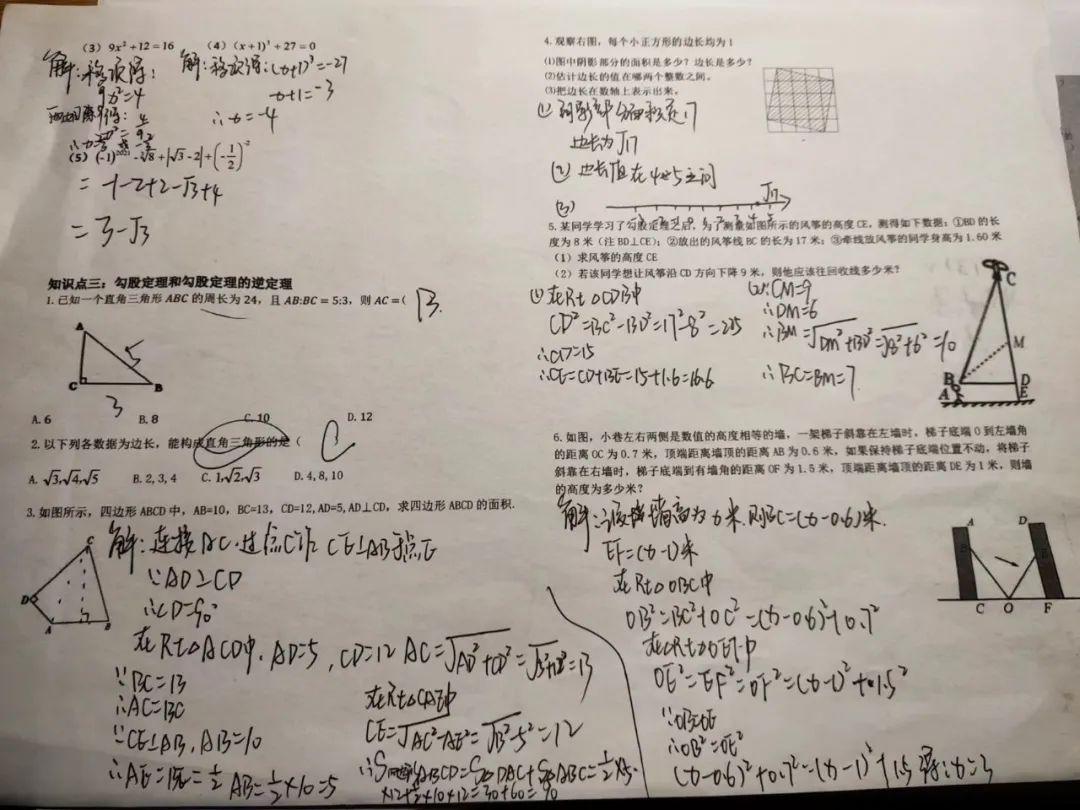 （3）9x²+12=16 （4）(x+1)³+27=0
解：移项得： 解：移项得：(x+1)³=-27
9x²=4 x+1=-3
∴x=-4
（5）(-1)²⁰²¹-³√8+|√3-2|+(-1/2)⁻²
=-1-2+2-√3+4
=3-√3
知识点三：勾股定理和勾股定理的逆定理
1.已知一个直角三角形 ABC 的周长为 24，且 AB:BC = 5:3，则 AC =( B.
A
5
C B
3
A. 6 B. 8 C. 10 D. 12
2.以下列各数据为边长，能构成直角三角形的是（ C
A. √3,√4,√5 B. 2, 3, 4 C. 1,√2,√3 D. 4, 8, 10
3.如图所示，四边形 ABCD 中，AB=10，BC=13，CD=12,AD=5,AD⊥CD，求四边形 ABCD 的面积.
C
D
A B
解：连接AC.过点C作 CE⊥AB于点E
∵AD⊥CD
∴∠D=90°
在Rt△ACD中，AD=5，CD=12 AC=√AD²+CD²=√5²+12²=13
∵BC=13
∴AC=BC
∵CE⊥AB，AB=10
∴AE=BE=½AB=½×10=5
在Rt△CAE中
CE=√AC²-AE²=√13²-5²=12
∴S四边形ABCD=S△DAC+S△ABC=½×5
×12+½×10×12=30+60=90
4.观察右图，每个小正方形的边长均为 1
(1)图中阴影部分的面积是多少？边长是多少？
(2)估计边长的值在哪两个整数之间。
(3)把边长在数轴上表示出来。
(1) 阴影部分面积是17
边长为√17
(2) 边长值在4与5之间
(3) √17
5.某同学学习了勾股定理之后，为了测量如图所示的风筝的高度 CE，测得如下数据：①BD 的长
度为 8 米（注 BD⊥CE）；②放出的风筝线 BC 的长为 17 米；③牵线放风筝的同学身高为 1.60 米
（1）求风筝的高度 CE
（2）若该同学想让风筝沿 CD 方向下降 9 米，则他应该往回收线多少米？
(1) 在Rt△CDB中
CD²=BC²-BD²=17²-8²=225
∴CD=15
∴CE=CD+BE=15+1.6=16.6
(2)∵CM=9
∴DM=6
∴BM=√DM²+BD²=√8²+6²=10
∴BC-BM=7
C
M
B D
A E
6.如图，小巷左右两侧是数值的高度相等的墙，一架梯子斜靠在左墙时，梯子底端 O 到左墙角
的距离 OC 为 0.7 米，顶端距离墙顶的距离 AB 为 0.6 米，如果保持梯子底端位置不动，将梯子
斜靠在右墙时，梯子底端到有墙角的距离 OF 为 1.5 米，顶端距离墙顶的距离 DE 为 1 米，则墙
的高度为多少米？
解：设墙高为x米.则BC=(x-0.6)米.
EF=(x-1)米
在Rt△OBC中
OB²=BC²+OC²=(x-0.6)²+0.7²
在Rt△OEF中
OE²=EF²=OF²=(x-1)²+1.5²
∵OB=OE
∴OB²=OE²
(x-0.6)²+0.7²=(x-1)²+1.5 得：x=3
A D
B E
C O F